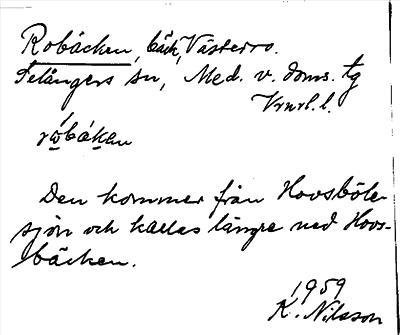 Robäcken, bäck, Västerro.
Selångers sn, Med. v. doms. tg
Vrnrl. l.
ròbäken
Den kommer från Hovsböle-
sjön och kallas längre ned Hovs-
bäcken.
1959
K. Nilsson